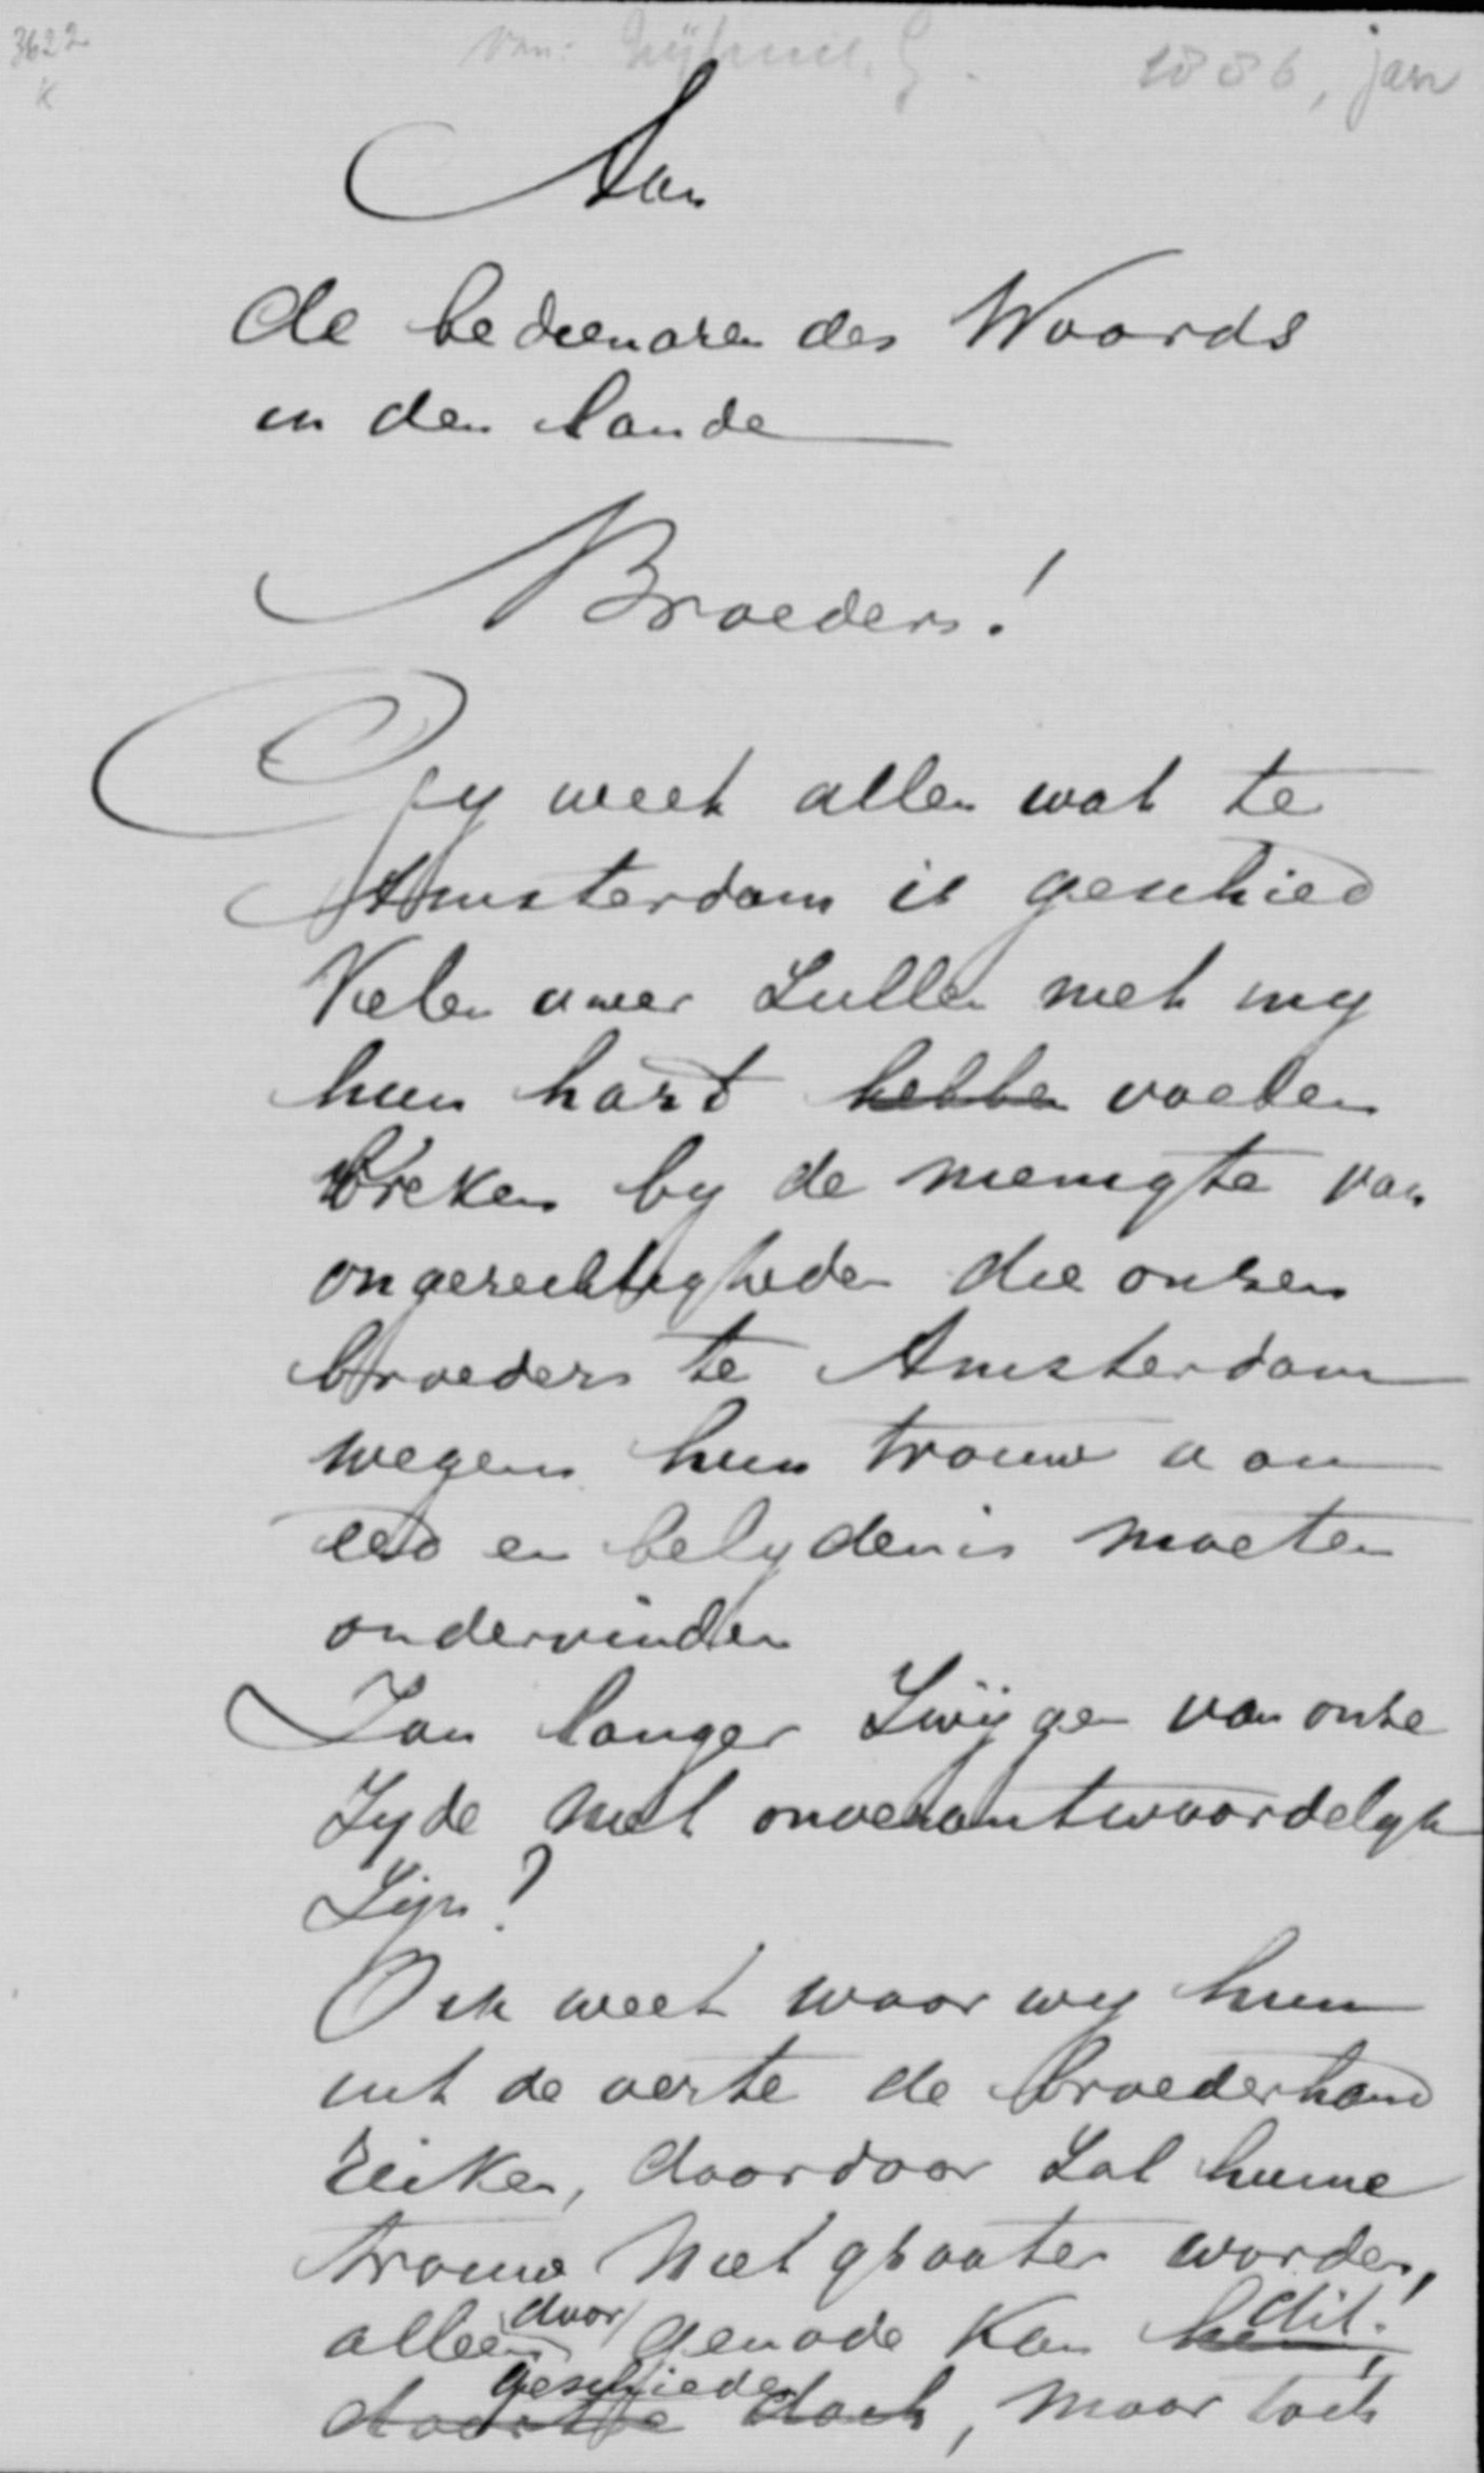 3622
van: 1886, jan
Aan
de bedienaren des Woords
in den lande
Broeders!
Gy weet allen wat te
Amsterdam is geschied
Velen uwer zullen met my
hun hart hebben voelen
breken by de menigte van
ongerechtigheden die onzen
broeders te Amsterdam
wegens hun trouw aan
eed en belydenis moeten
ondervinden
Zou langer zwijgen van onze
zyde niet onverantwoordelyk
zijn?
Ook weet waar wy hun
uit de verte de broederhand
reiken, daardoor zal hunne
trouw niet grooter worden,
alleen door genade kan dit!
geschieden doch, maar toch